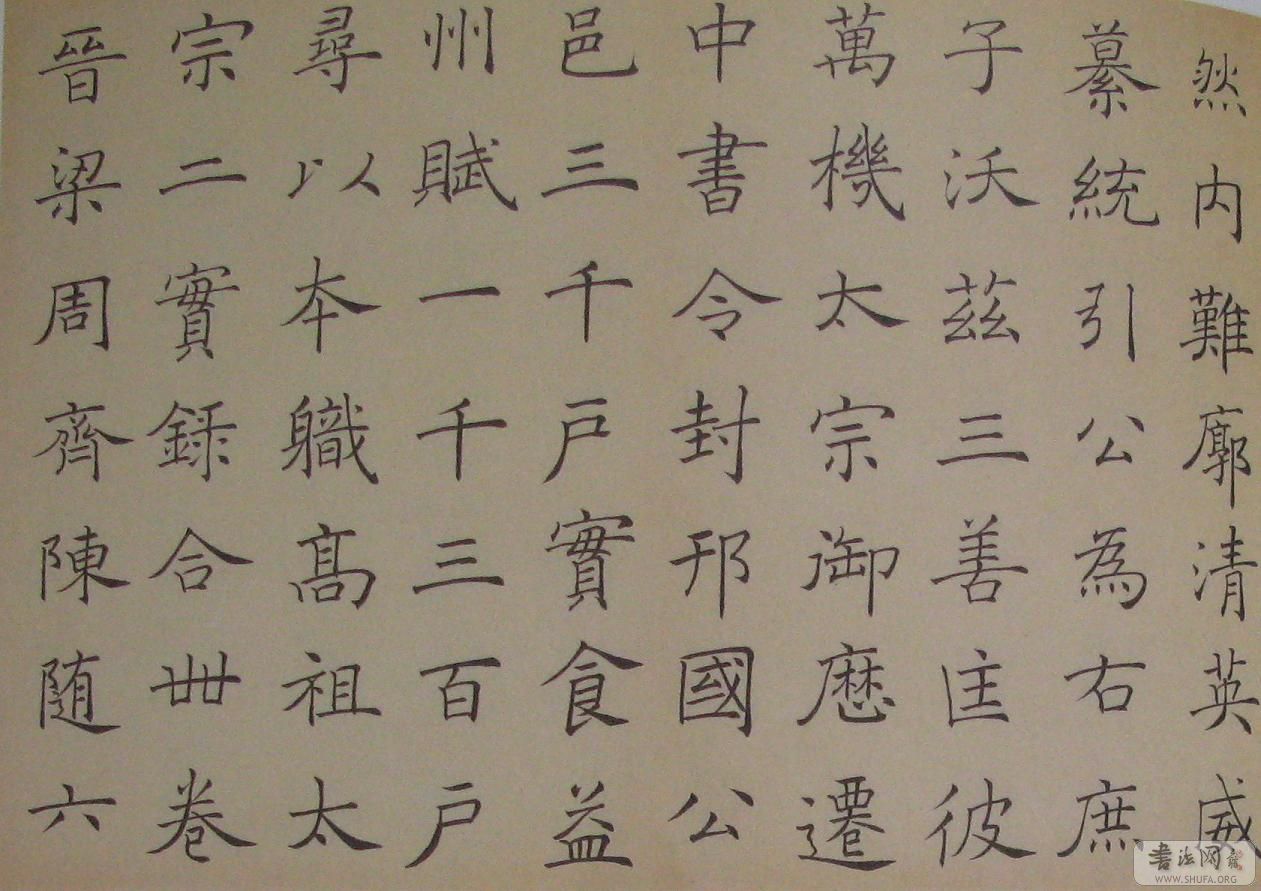 然内難廓清英威
纂統引公為右庶
子沃茲三善匡彼
萬機太宗御厯遷
中書令封邗國公
邑三千戶實食益
州賦一千三百戶
尋以本職高祖太
宗二實錄合卌卷
晉梁周齊陳随六
書法网
WWW.SHUFA.ORG